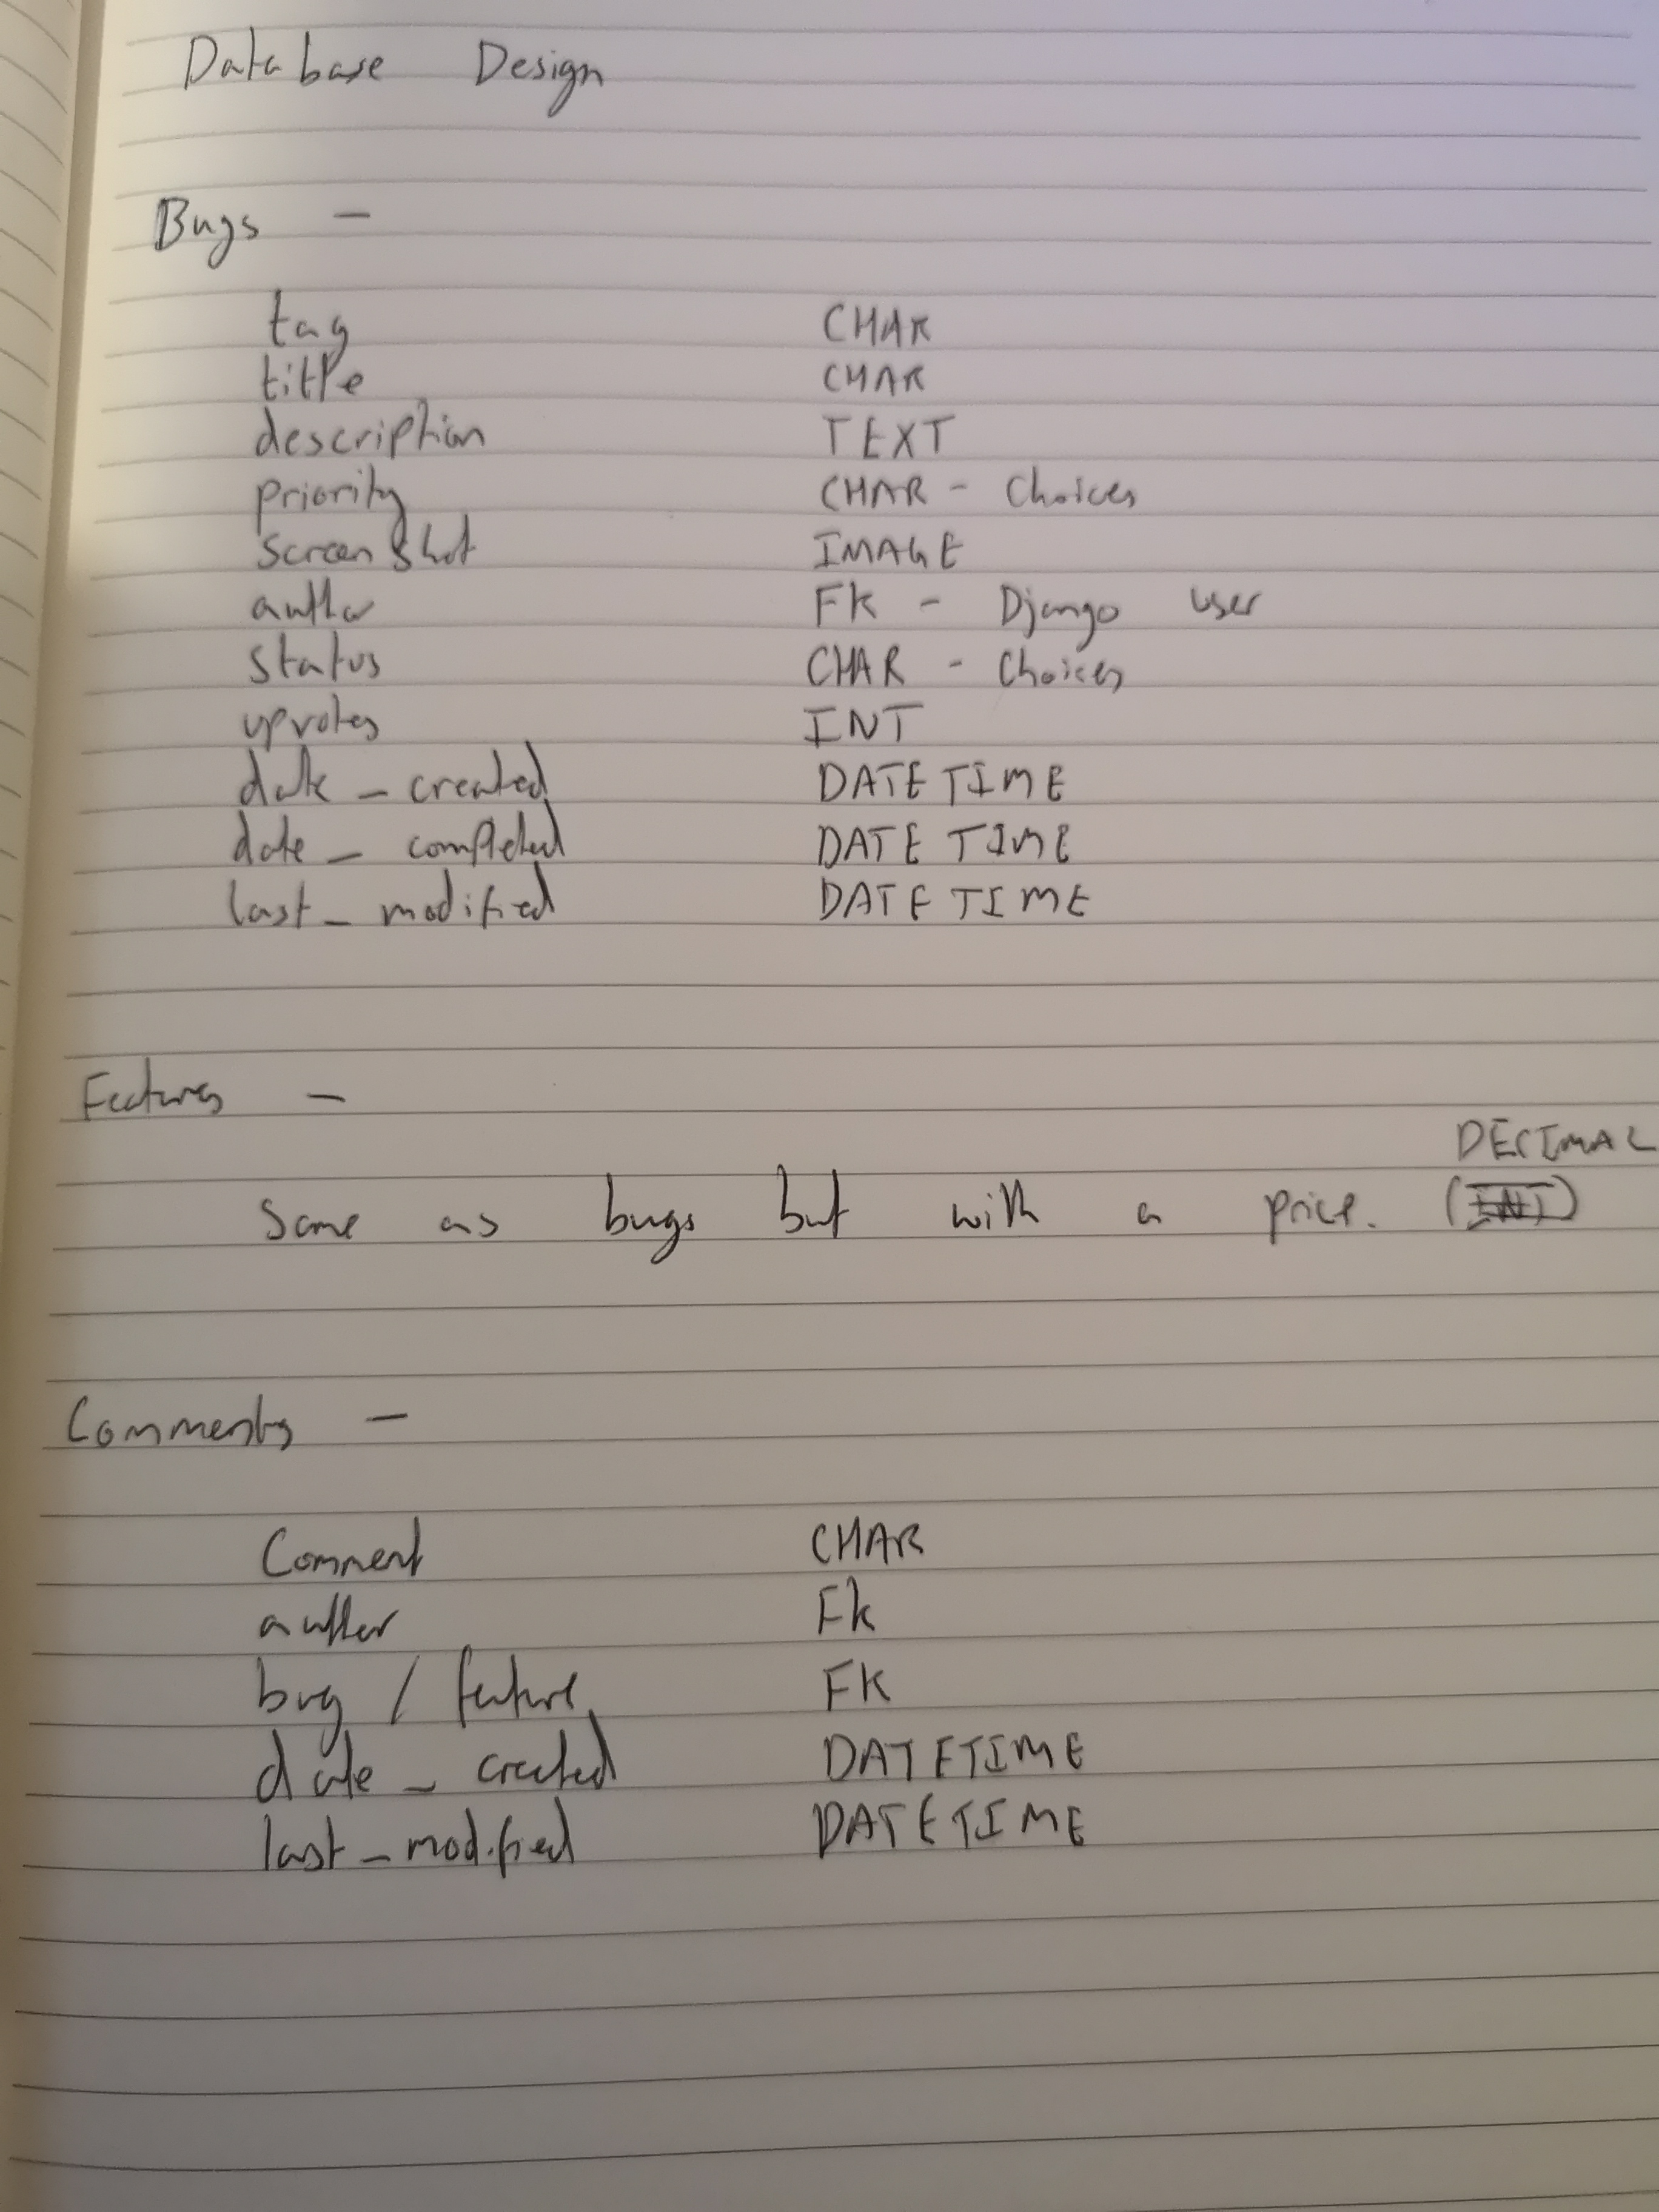 Database Design
Bugs -
tag CHAR
title CHAR
description TEXT
priority CHAR - Choices
screenshot IMAGE
author FK - Django user
status CHAR - Choices
upvotes INT
date_created DATETIME
date_completed DATETIME
last_modified DATETIME
Features -
DECIMAL
Same as bugs but with a price. (INT)
Comments -
Comment CHAR
author FK
bug / feature FK
date_created DATETIME
last_modified DATETIME